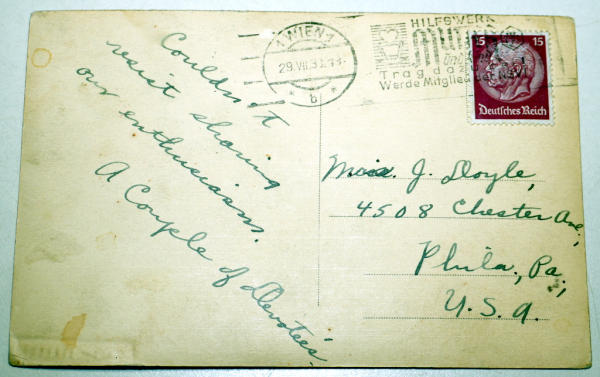 Couldn't
resist sharing
our enthusiasm.
A Couple of Devotees
WIEN
29.VII.3
b
HILFSWERK
Mutter
und
Trag da
Werde Mitglied
15 15
Deutsches Reich
J. Doyle,
4508 Chester Ave.,
Phila., Pa.,
U.S.A.